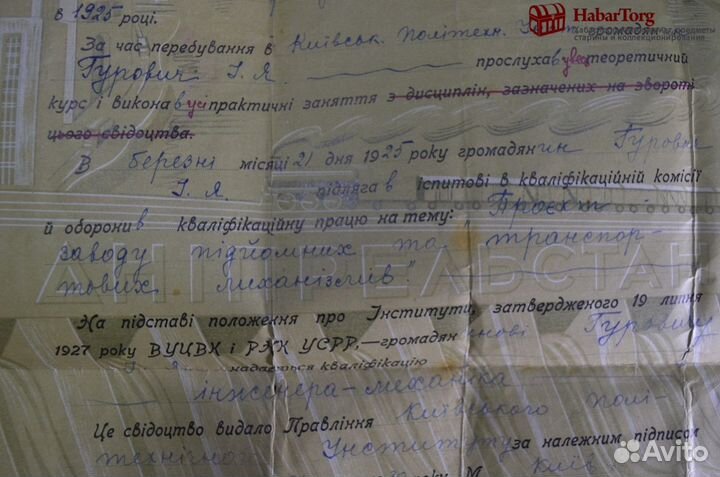 в 1925 році.
HabarTorg
За час перебування в Київськ. Політехн. Інст. громадян
Гурович І. Я. прослухав увесь теоретичний
курс і виконав усі практичні заняття з дисциплін, зазначених на звороті
цього свідоцтва.
В березні місяці 21 дня 1925 року громадянин Гурович
І. Я. підлягав іспитові в кваліфікаційній комісії
й оборонив кваліфікаційну працю на тему: "Проєкт
заводу підйомних та транспор-
тових механізмів."
На підставі положення про Інститути, затвердженого 19 липня
1927 року ВУЦВК і РНК УСРР,—громадянинові Гуровичу
І. Я. надається кваліфікацію
інженера-механіка
Це свідоцтво видало Правління Київського Полі-
технічного Інституту за належним підписом
року М. Київ.
Avito